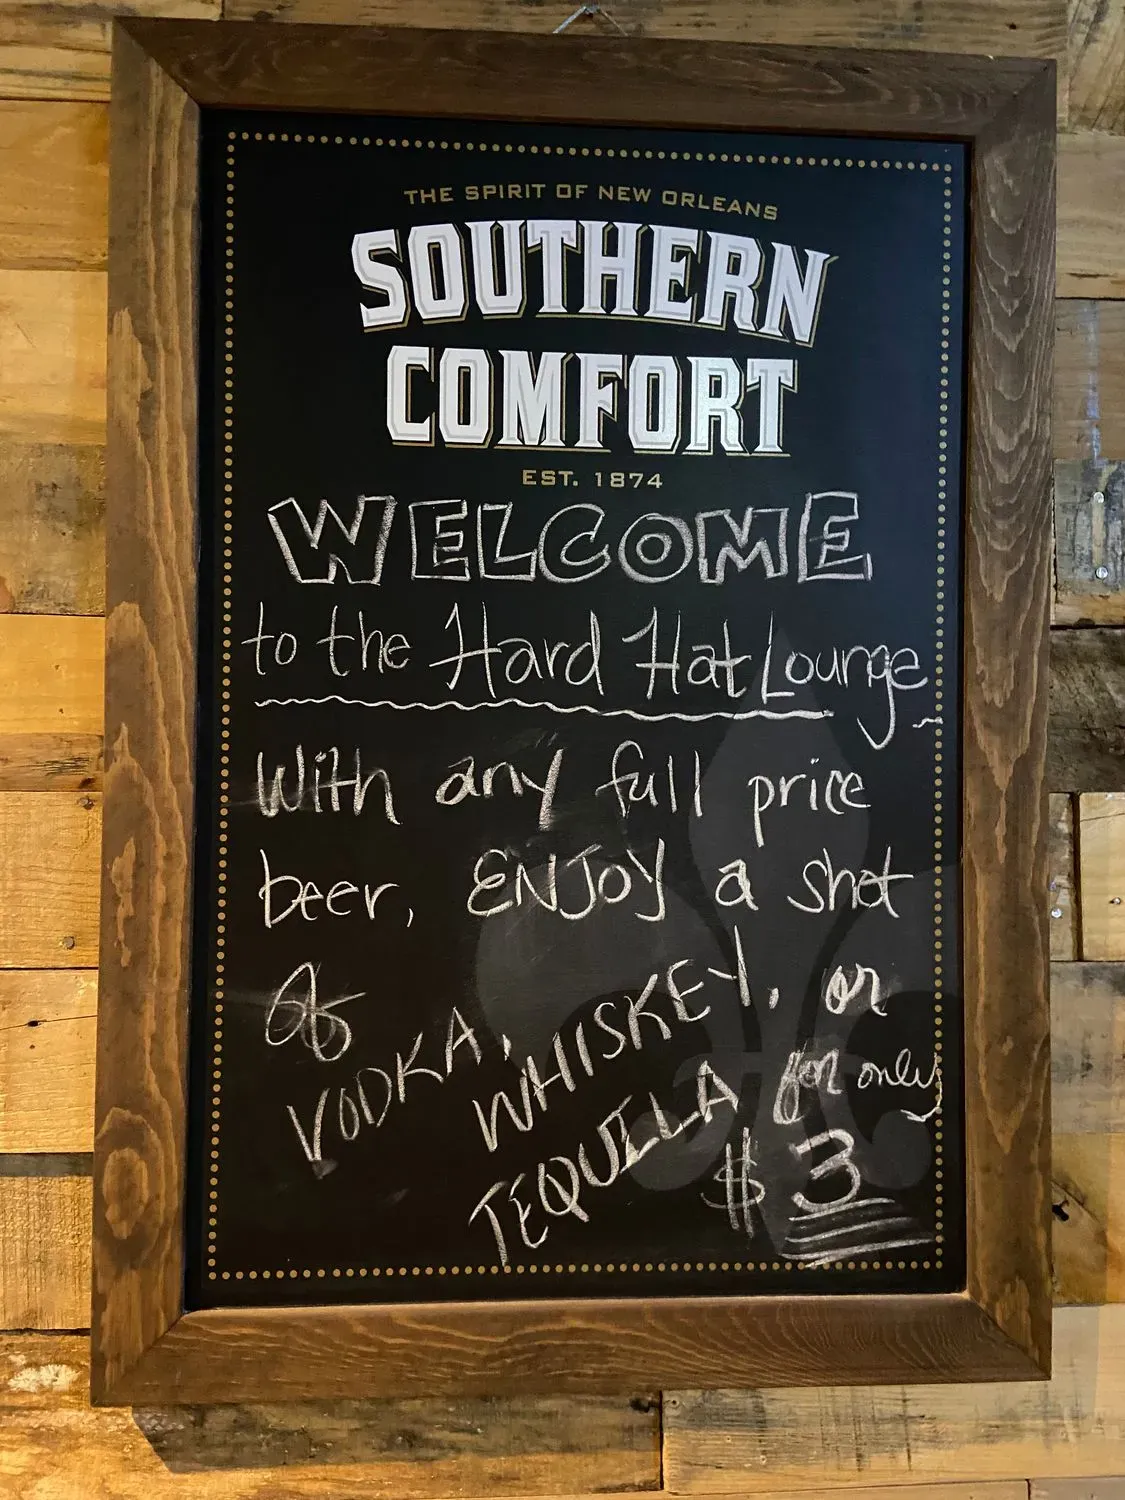 THE SPIRIT OF NEW ORLEANS
SOUTHERN
COMFORT
EST. 1874
WELCOME
to the Hard Hat Lounge
With any full price
beer, ENJOY a shot
of
VODKA, WHISKEY, or
TEQUILA for only
$3